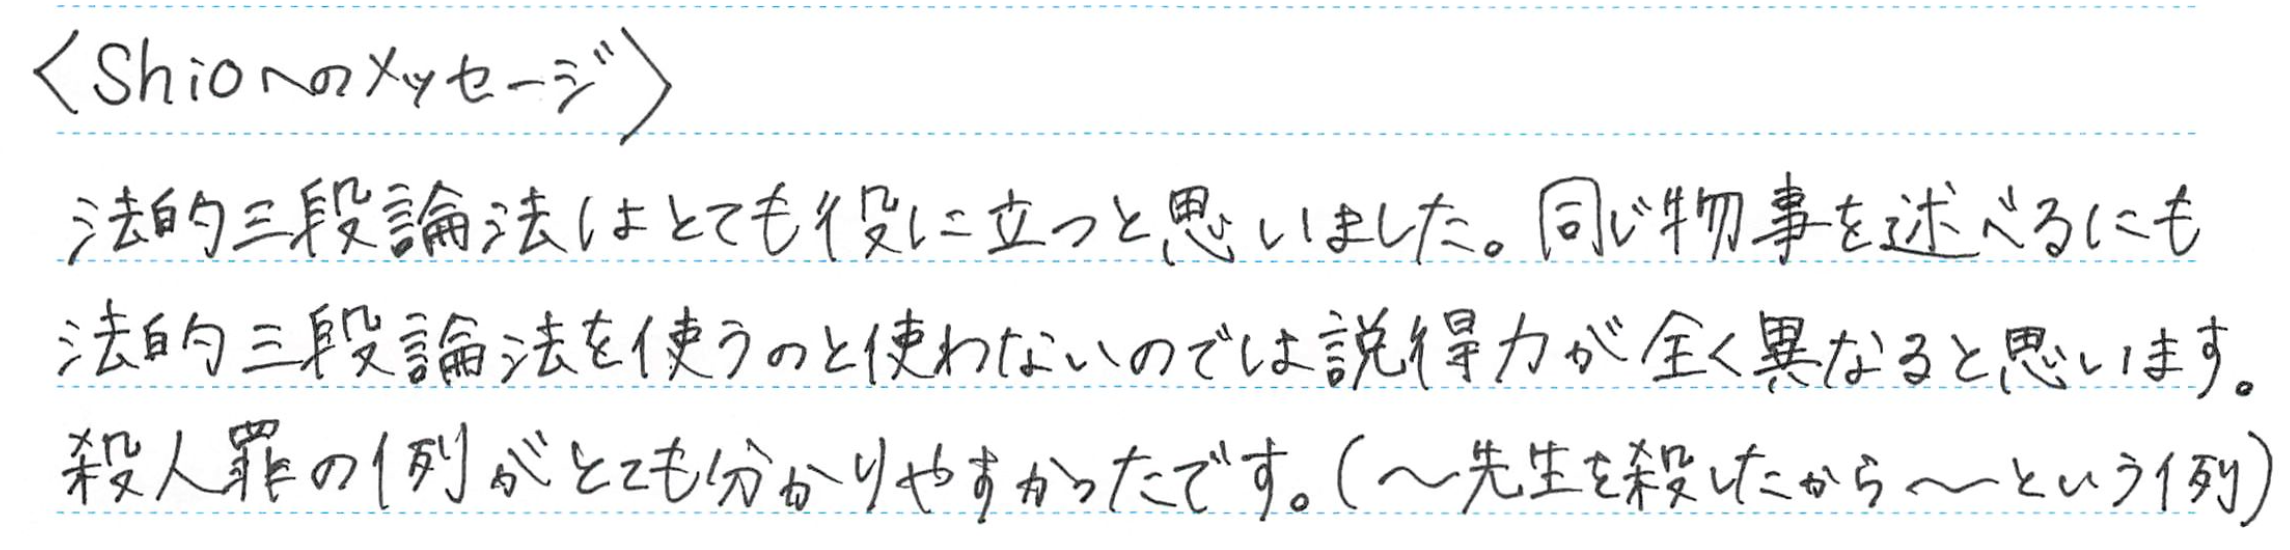 〈Shioへのメッセージ〉
法的三段論法はとても役に立つと思いました。同じ物事を述べるにも
法的三段論法を使うのと使わないのでは説得力が全く異なると思います。
殺人罪の例がとても分かりやすかったです。(〜先生を殺したから〜という例)